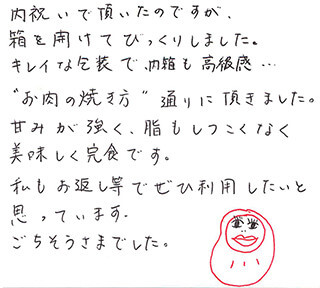 内祝いで頂いたのですが、
箱を開けてびっくりしました。
キレイな包装で、内箱も高級感…
"お肉の焼き方"通りに頂きました。
甘みが強く、脂もしつこくなく
美味しく完食です。
私もお返し等でぜひ利用したいと
思っています。
ごちそうさまでした。